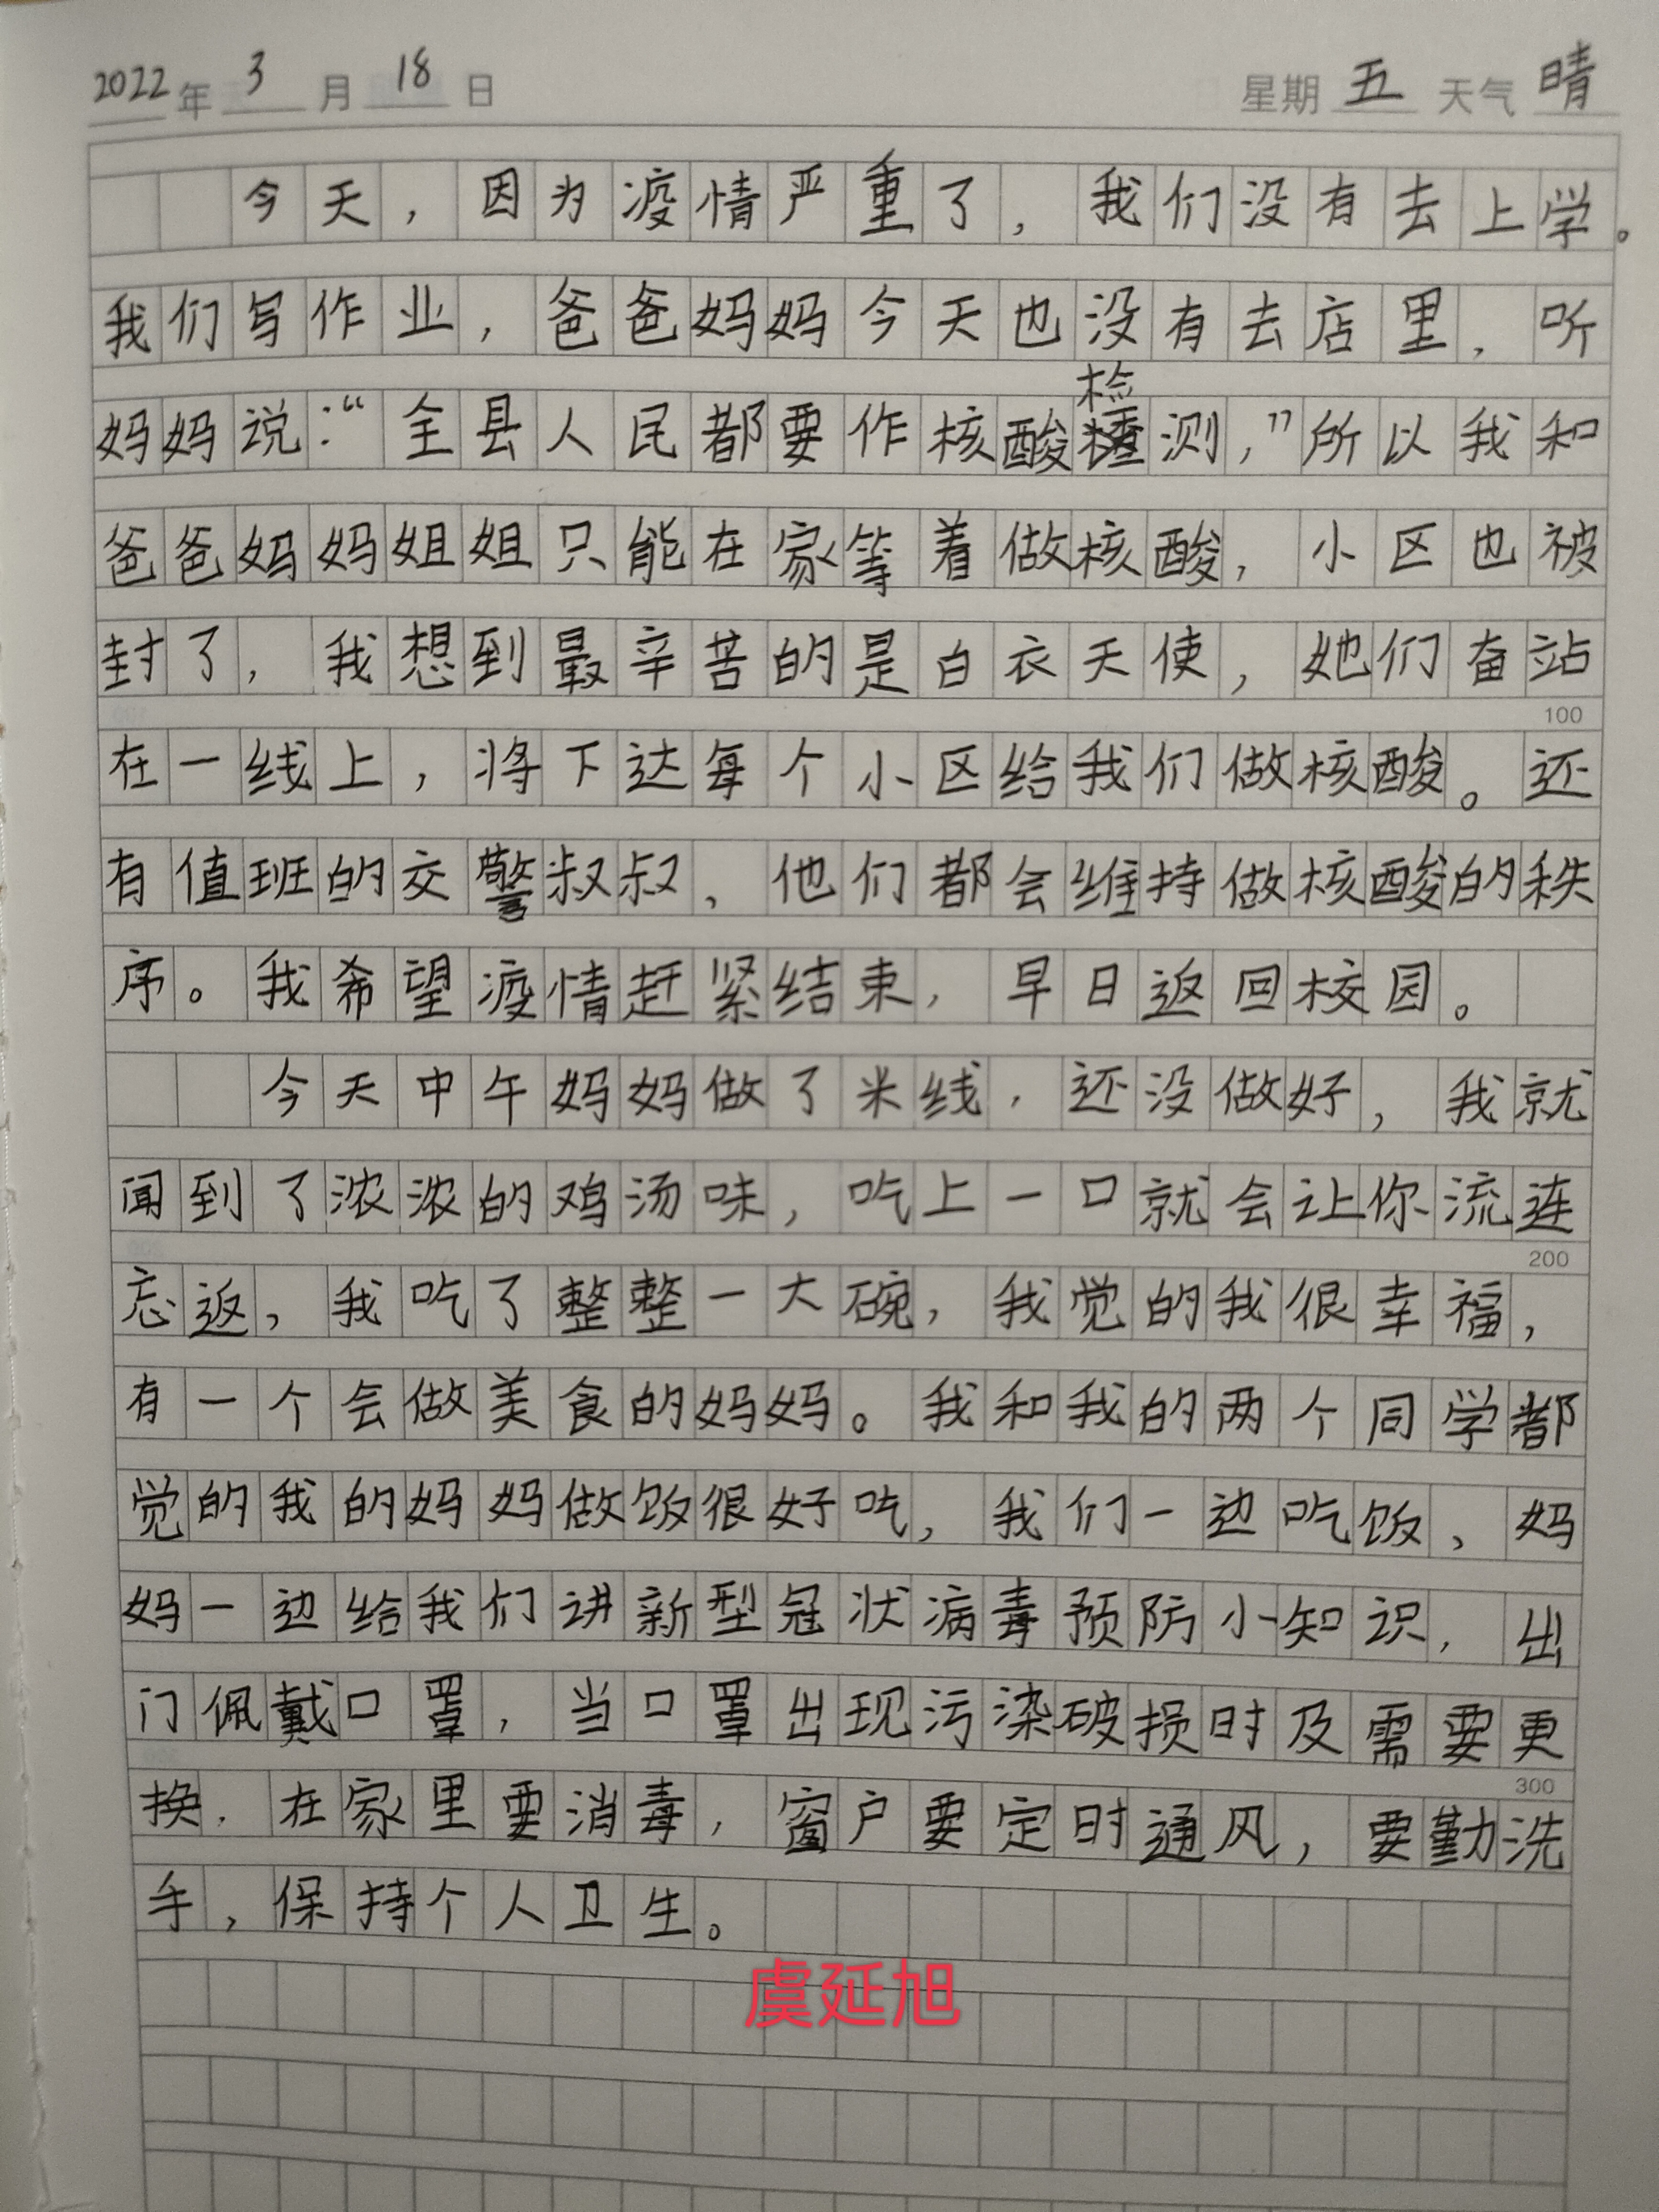 2022年 3 月 18 日 星期 五 天气 晴
今天，因为疫情严重了，我们没有去上学。
我们写作业，爸爸妈妈今天也没有去店里，听
妈妈说：“全县人民都要作核酸检测，”所以我和
爸爸妈妈姐姐只能在家等着做核酸，小区也被
封了，我想到最辛苦的是白衣天使，她们奋站
100
在一线上，将下达每个小区给我们做核酸。还
有值班的交警叔叔，他们都会维持做核酸的秩
序。我希望疫情赶紧结束，早日返回校园。
今天中午妈妈做了米线，还没做好，我就
闻到了浓浓的鸡汤味，吃上一口就会让你流连
200
忘返，我吃了整整一大碗，我觉的我很幸福，
有一个会做美食的妈妈。我和我的两个同学都
觉的我的妈妈做饭很好吃，我们一边吃饭，妈
妈一边给我们讲新型冠状病毒预防小知识，出
门佩戴口罩，当口罩出现污染破损时及需要更
300
换，在家里要消毒，窗户要定时通风，要勤洗
手，保持个人卫生。
虞延旭